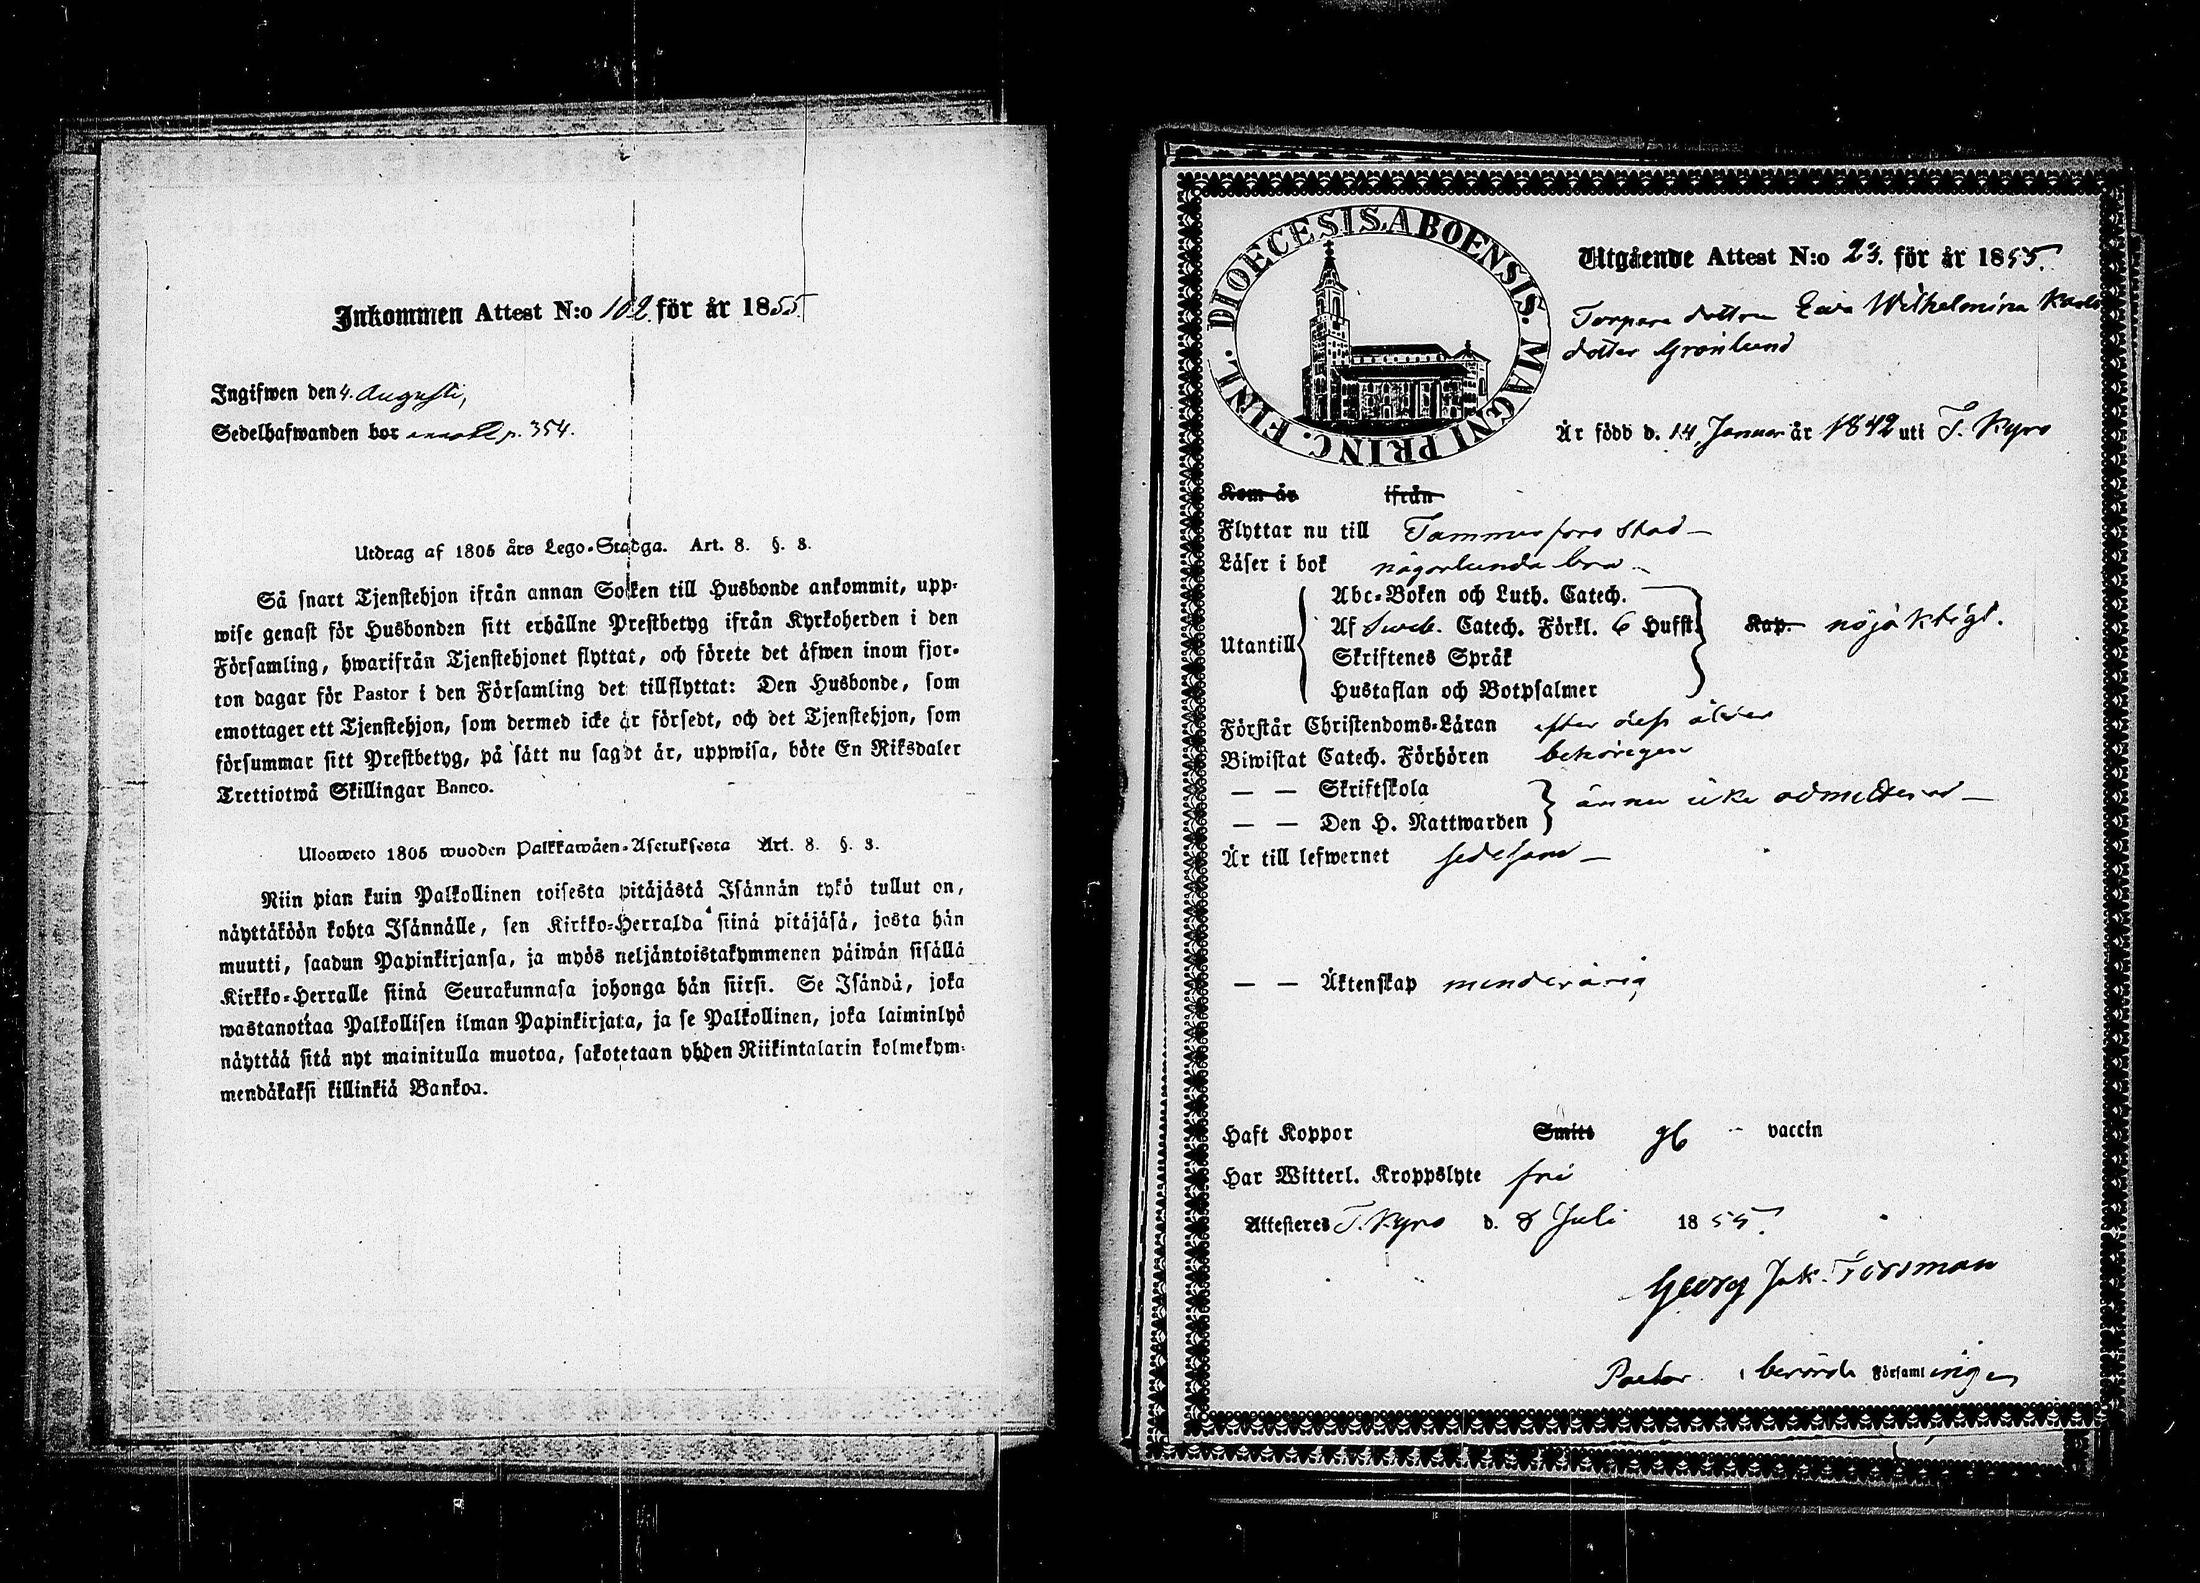 Inkommen Attest N:o 102. för år 1855.
Ingifwen den 4. Augusti,
Sedelhafwanden bor p. 354.
Utdrag af 1805 års Lego-Stadga. Art. 8. §. 8.
Så snart Tjenstehjon ifrån annan Socken till Husbonde ankommit, upp-
wise genast för Husbonden sitt erhållne Prestbetyg ifrån Kyrkoherden i den
Församling, hwarifrån Tjenstehjonet flyttat, och förete det äfwen inom fjor-
ton dagar för Pastor i den Församling det tillflyttat: Den Husbonde, som
emottager ett Tjenstehjon, som dermed icke är försedt, och det Tjenstehjon, som
försummar sitt Prestbetyg, på sätt nu sagdt är, uppwisa, böte En Riksdaler
Trettiotwå Skillingar Banco.
Ulosweto 1805 wuoden Palkkawäen-Asetuksesta Art. 8. §. 8.
Niin pian kuin Palkollinen toisesta pitäjästä Isännän tykö tullut on,
näyttäköön kohta Isännälle, sen Kirkko-Herralda siinä pitäjäsä, josta hän
muutti, saadun Papinkirjansa, ja myös neljäntoistakymmenen päiwän sisällä
Kirkko-Herralle siinä Seurakunnasa johonga hän siirsi. Se Isändä, joka
wastanottaa Palkollisen ilman Papinkirjata, ja se Palkollinen, joka laiminlyö
näyttää sitä nyt mainitulla muotoa, sakotetaan yhden Riikintalarin kolmekym-
mendäkaksi killinkiä Bankoa.
DIOECESIS ABOENSIS. MAGNI PRINC. FINL.
Utgående Attest N:o 23. för år 1855.
Torpare dottren Eva Wilhelmina Karls
dotter Grönlund
Är född d. 14 Januari år 1842 uti T. Kyro
Kom år ifrån
Flyttar nu till Tammerfors Stad
Läser i bok någorlunda bra
Abc-Boken och Luth. Catech.
Utantill Af Sweb. Catech. Förkl. 6 Hufst. Kap. nöjaktigt.
Skriftenes Språk
Hustaflan och Botpsalmer
Förstår Christendoms-Läran efter dess ålder
Biwistat Catech. Förhören behörigen
— — Skriftskola
— — Den H. Nattwarden ännu icke admitterad
Är till lefwernet sedesam
— — Äktenskap minderårig
Haft Koppor Smitt gb vaccin
Har Witterl. Kroppslyte fri
Attesteres T. Kyro d. 8 Juli 1855.
Georg Jak. Forsman
Pastor i berörde Församlingen